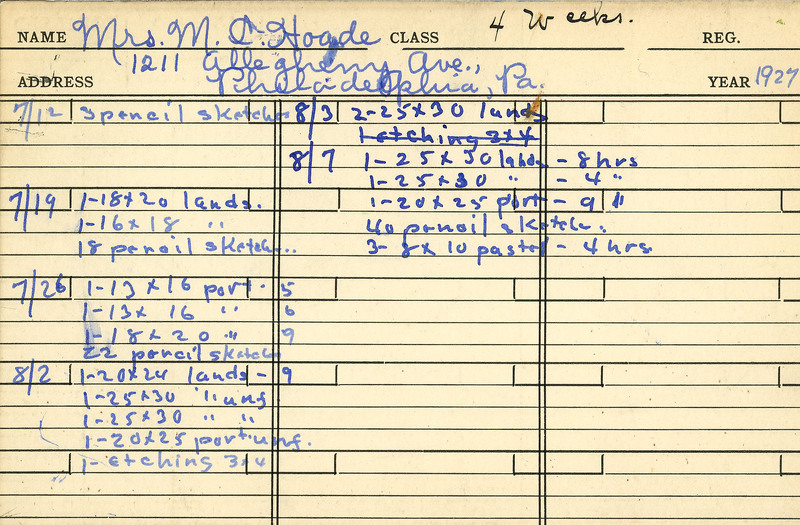 NAME Mrs. M. C. Hoade CLASS 4 Weeks. REG.
1211 Allegheny Ave.,
ADDRESS Philadelphia, Pa. YEAR 1927
7/12 3 pencil sketches 8/3 2-25x30 lands
1 etching 3x4
8/7 1-25x30 lands - 8 hrs
1-25x30 " - 4 "
7/19 1-18x20 lands. 1-20x25 port - 9 "
1-16x18 " 40 pencil sketch.
18 pencil sketch... 3-8x10 pastel - 4 hrs
7/26 1-13x16 port. 5
1-13x16 " 6
1-18x20 " 9
22 pencil sketch
8/2 1-20x24 lands - 9
1-25x30 " unf
1-25x30 " "
1-20x25 port. unf.
1-etching 3x4